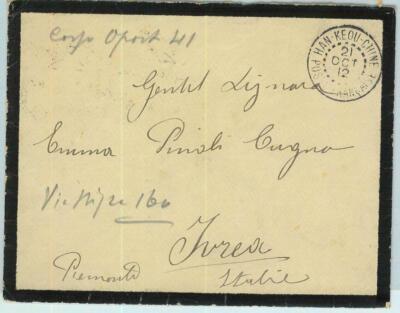 Corso Oport 41
HAN-KEOU-CHINE
21
OCT
12
POSTE FRANÇAISE
Gentil Signora
Emma Pinoli Cugno
Via 160
Ivrea
Piemonte
Italie